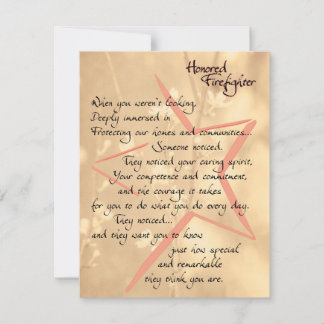 Honored
Firefighter
When you weren't looking,
Deeply immersed in
Protecting our homes and communities...
Someone noticed.
They noticed your caring spirit,
Your competence and commitment,
and the courage it takes
for you to do what you do every day.
They noticed...
and they want you to know
just how special
and remarkable
they think you are.